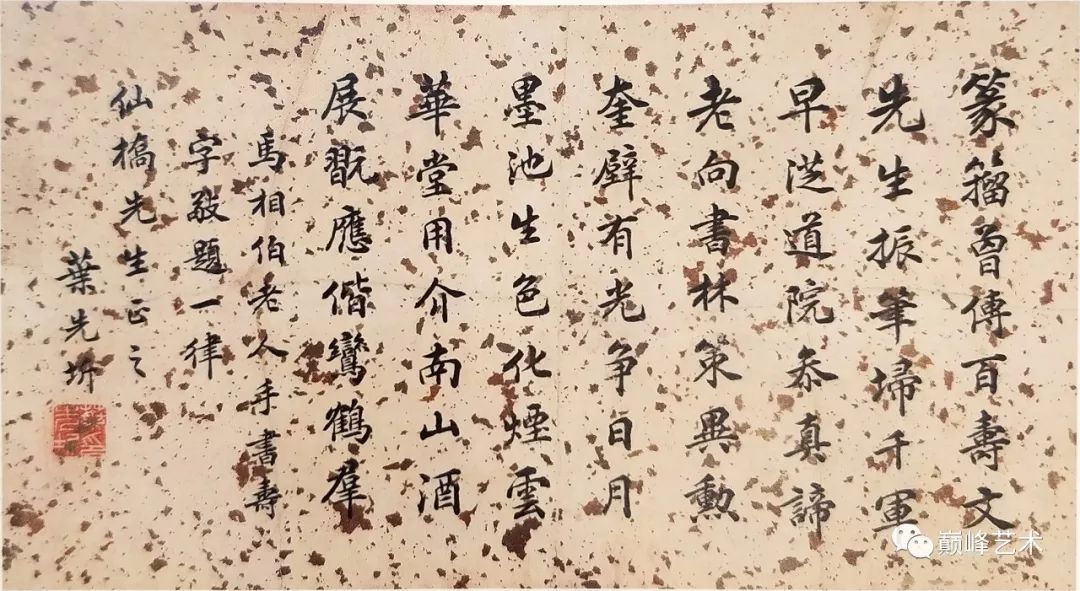 篆籀曾傳百壽文
先生振筆掃千軍
早從道院叅真諦
老向書林策異勳
奎壁有光争日月
墨池生色化煙雲
華堂用介南山酒
展翫應偕鸞鶴羣
馬相伯老人手書壽
字敬題一律
仙橋先生正之
葉先圻
巅峰艺术